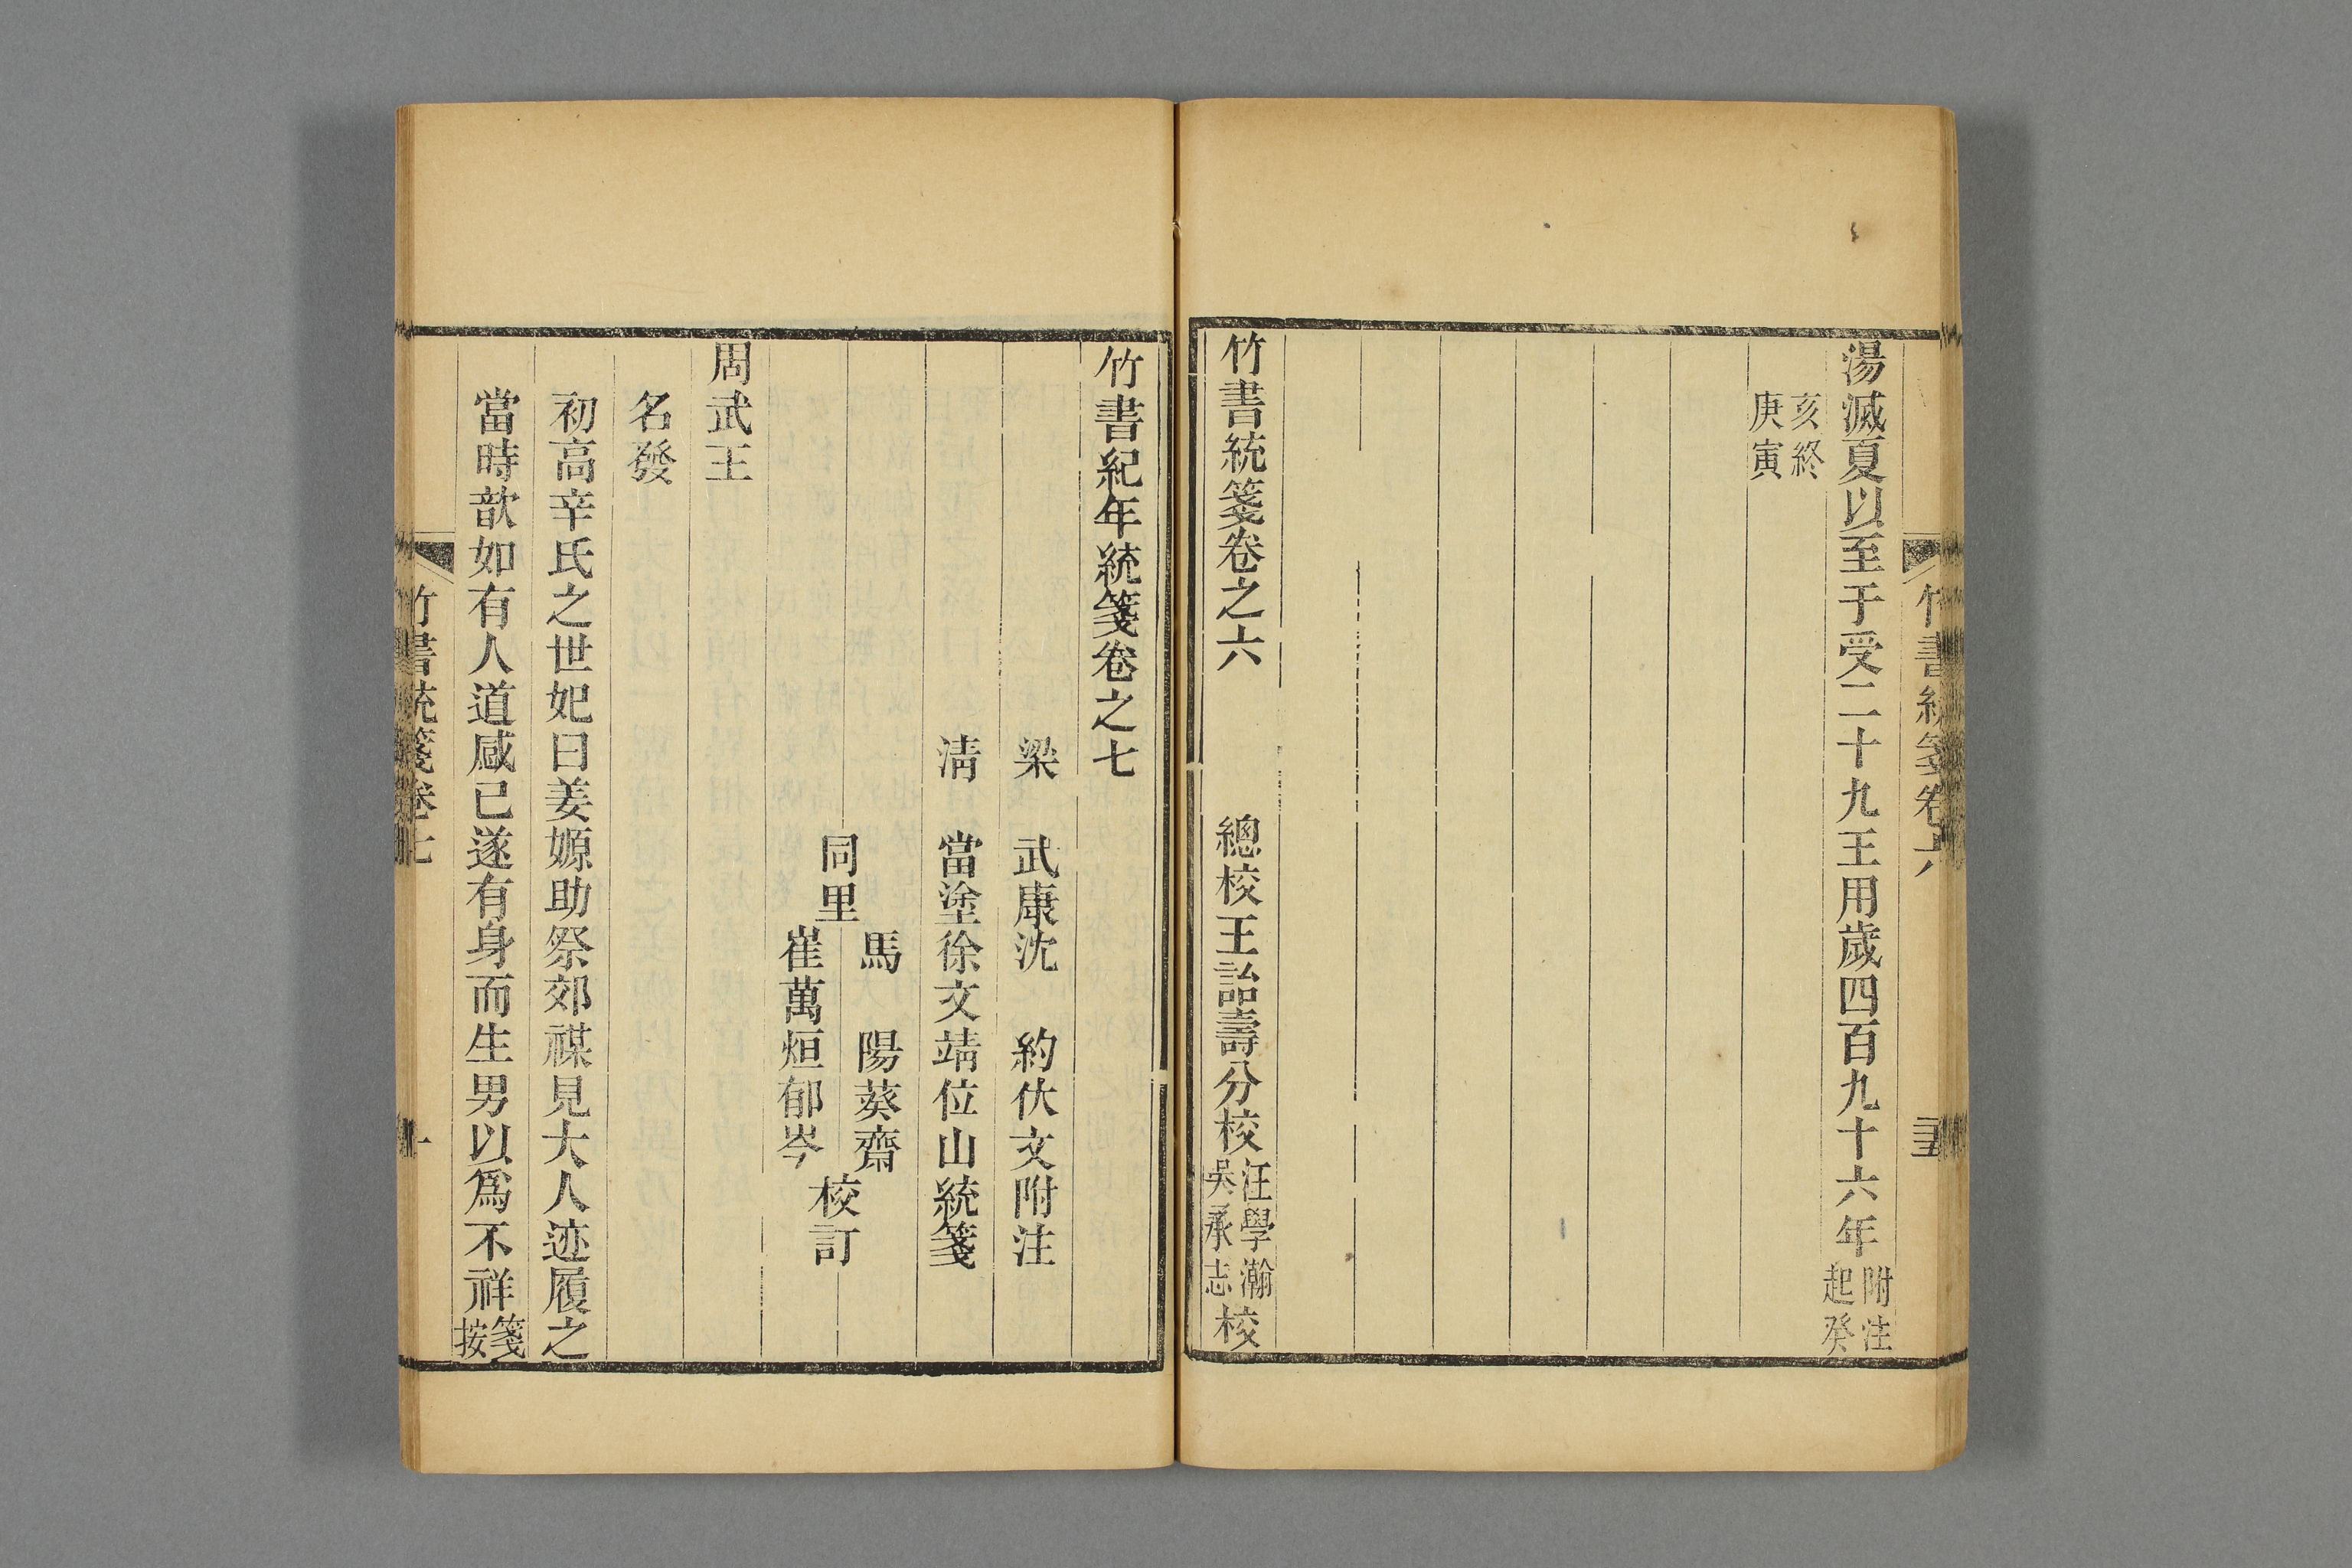 竹書統箋卷六
湯滅夏以至于受二十九王用歲四百九十六年附注起癸
亥終庚寅
竹書統箋卷之六 總校王詒壽分校汪學瀚吳承志校
竹書紀年統箋卷之七
梁 武康沈 約休文附注
清 當塗徐文靖位山統箋
同里
馬 陽葵齋
崔萬烜郁岑
校訂
周武王
名發
初高辛氏之世妃曰姜嫄助祭郊禖見大人迹履之
當時歆如有人道感己遂有身而生男以爲不祥箋按
竹書統箋卷七
一